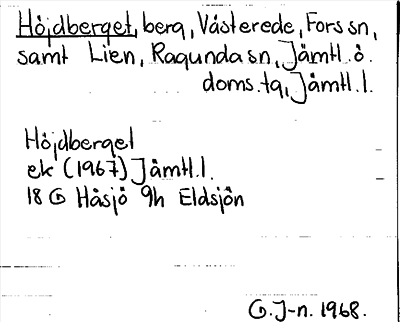 Höjdberget, berg, Västerede, Fors sn,
samt Lien, Ragunda sn, Jämtl. ö.
doms. tg, Jämtl. l.
Höjdberget
ek (1967) Jämtl. l.
18 G Håsjö 9h Eldsjön
G. J-n. 1968.